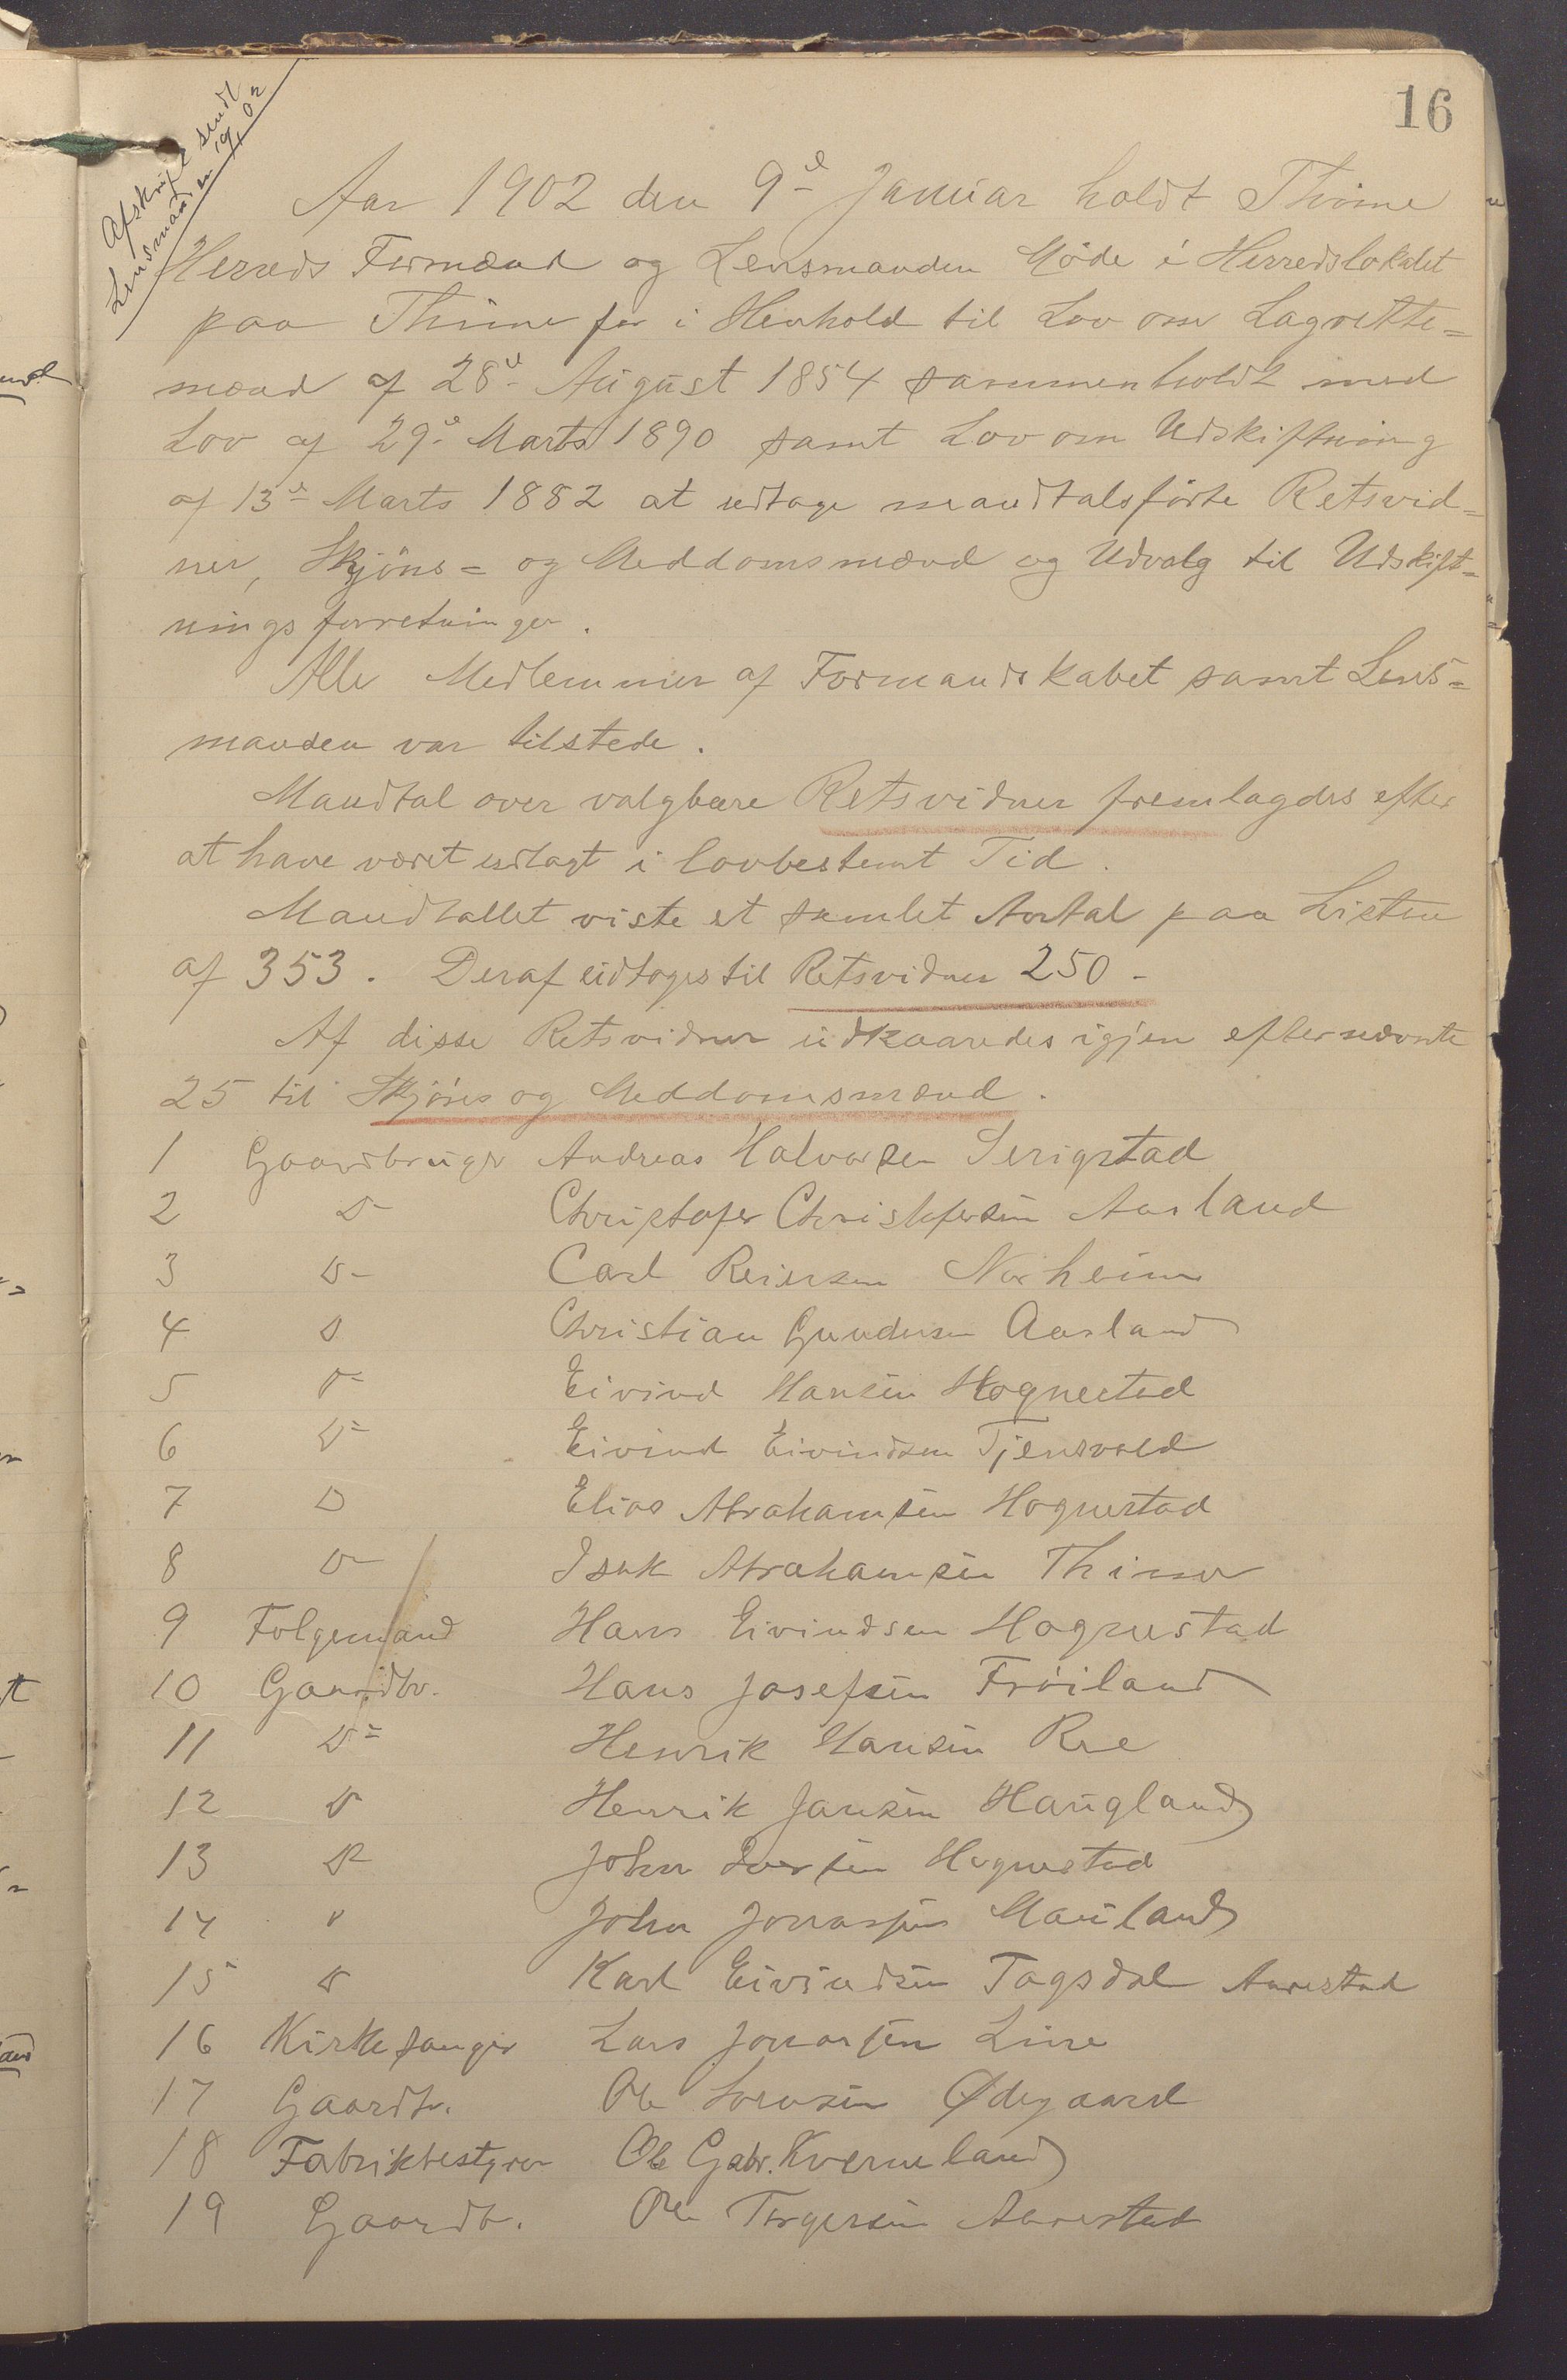 16
Afskrift sendt
Lensmanden 19/1 02
Aar 1902 den 9d Januar holdt Thime
Herreds Formænd og Lensmanden Møde i Herredslokalet
paa Thime for i Henhold til Lov om Lagrette=
mænd af 28d August 1854 sammenholdt med
Lov af 29d Marts 1890 samt Lov om Udskiftning
af 13d Marts 1882 at udtage mandtalsførte Retsvid=
ner, Skjøns= og Meddomsmænd og Udvalg til Udskift=
ningsforretninger.
Alle Medlemmer af Formandskabet samt Lens=
manden var tilstede.
Mandtal over valgbare Retsvidner fremlagdes efter
at have været udlagt i lovbestemt Tid.
Mandtallet viste et samlet Antal paa Listen
af 353. Deraf udtoges til Retsvidner 250 -
Af disse Retsvidner udkaaredes igjen efternævnte
25 til Skjøns og Meddomsmænd.
1 Gaardbruger Andreas Halvorsen Serigstad
2 D- Christofer Christofersen Aasland
3 D- Carl Reiersen Norheim
4 D Christian Gundersen Aasland
5 D- Eivind Hansen Hognestad
6 D- Eivind Eivindsen Tjensvold
7 D Elias Abrahamsen Hognestad
8 D- Isak Abrahamsen Thime
9 Folgemand Hans Eivindsen Hognestad
10 Gaardbr. Hans Josefsen Frøiland
11 D- Henrik Hansen Ree
12 D Henrik Jansen Haugland
13 D- John Iversen Hognestad
14 " John Jonassen Mauland
15 D Karl Eivindsen Tagsdal Aarestad
16 Kirkesanger Lars Jonassen Line
17 Gaardbr. Ole Sorensen Ødegaard
18 Fabrikbestyrer Ole Gabr. Kverneland
19 Gaardbr. Ole Torgersen Aarestad